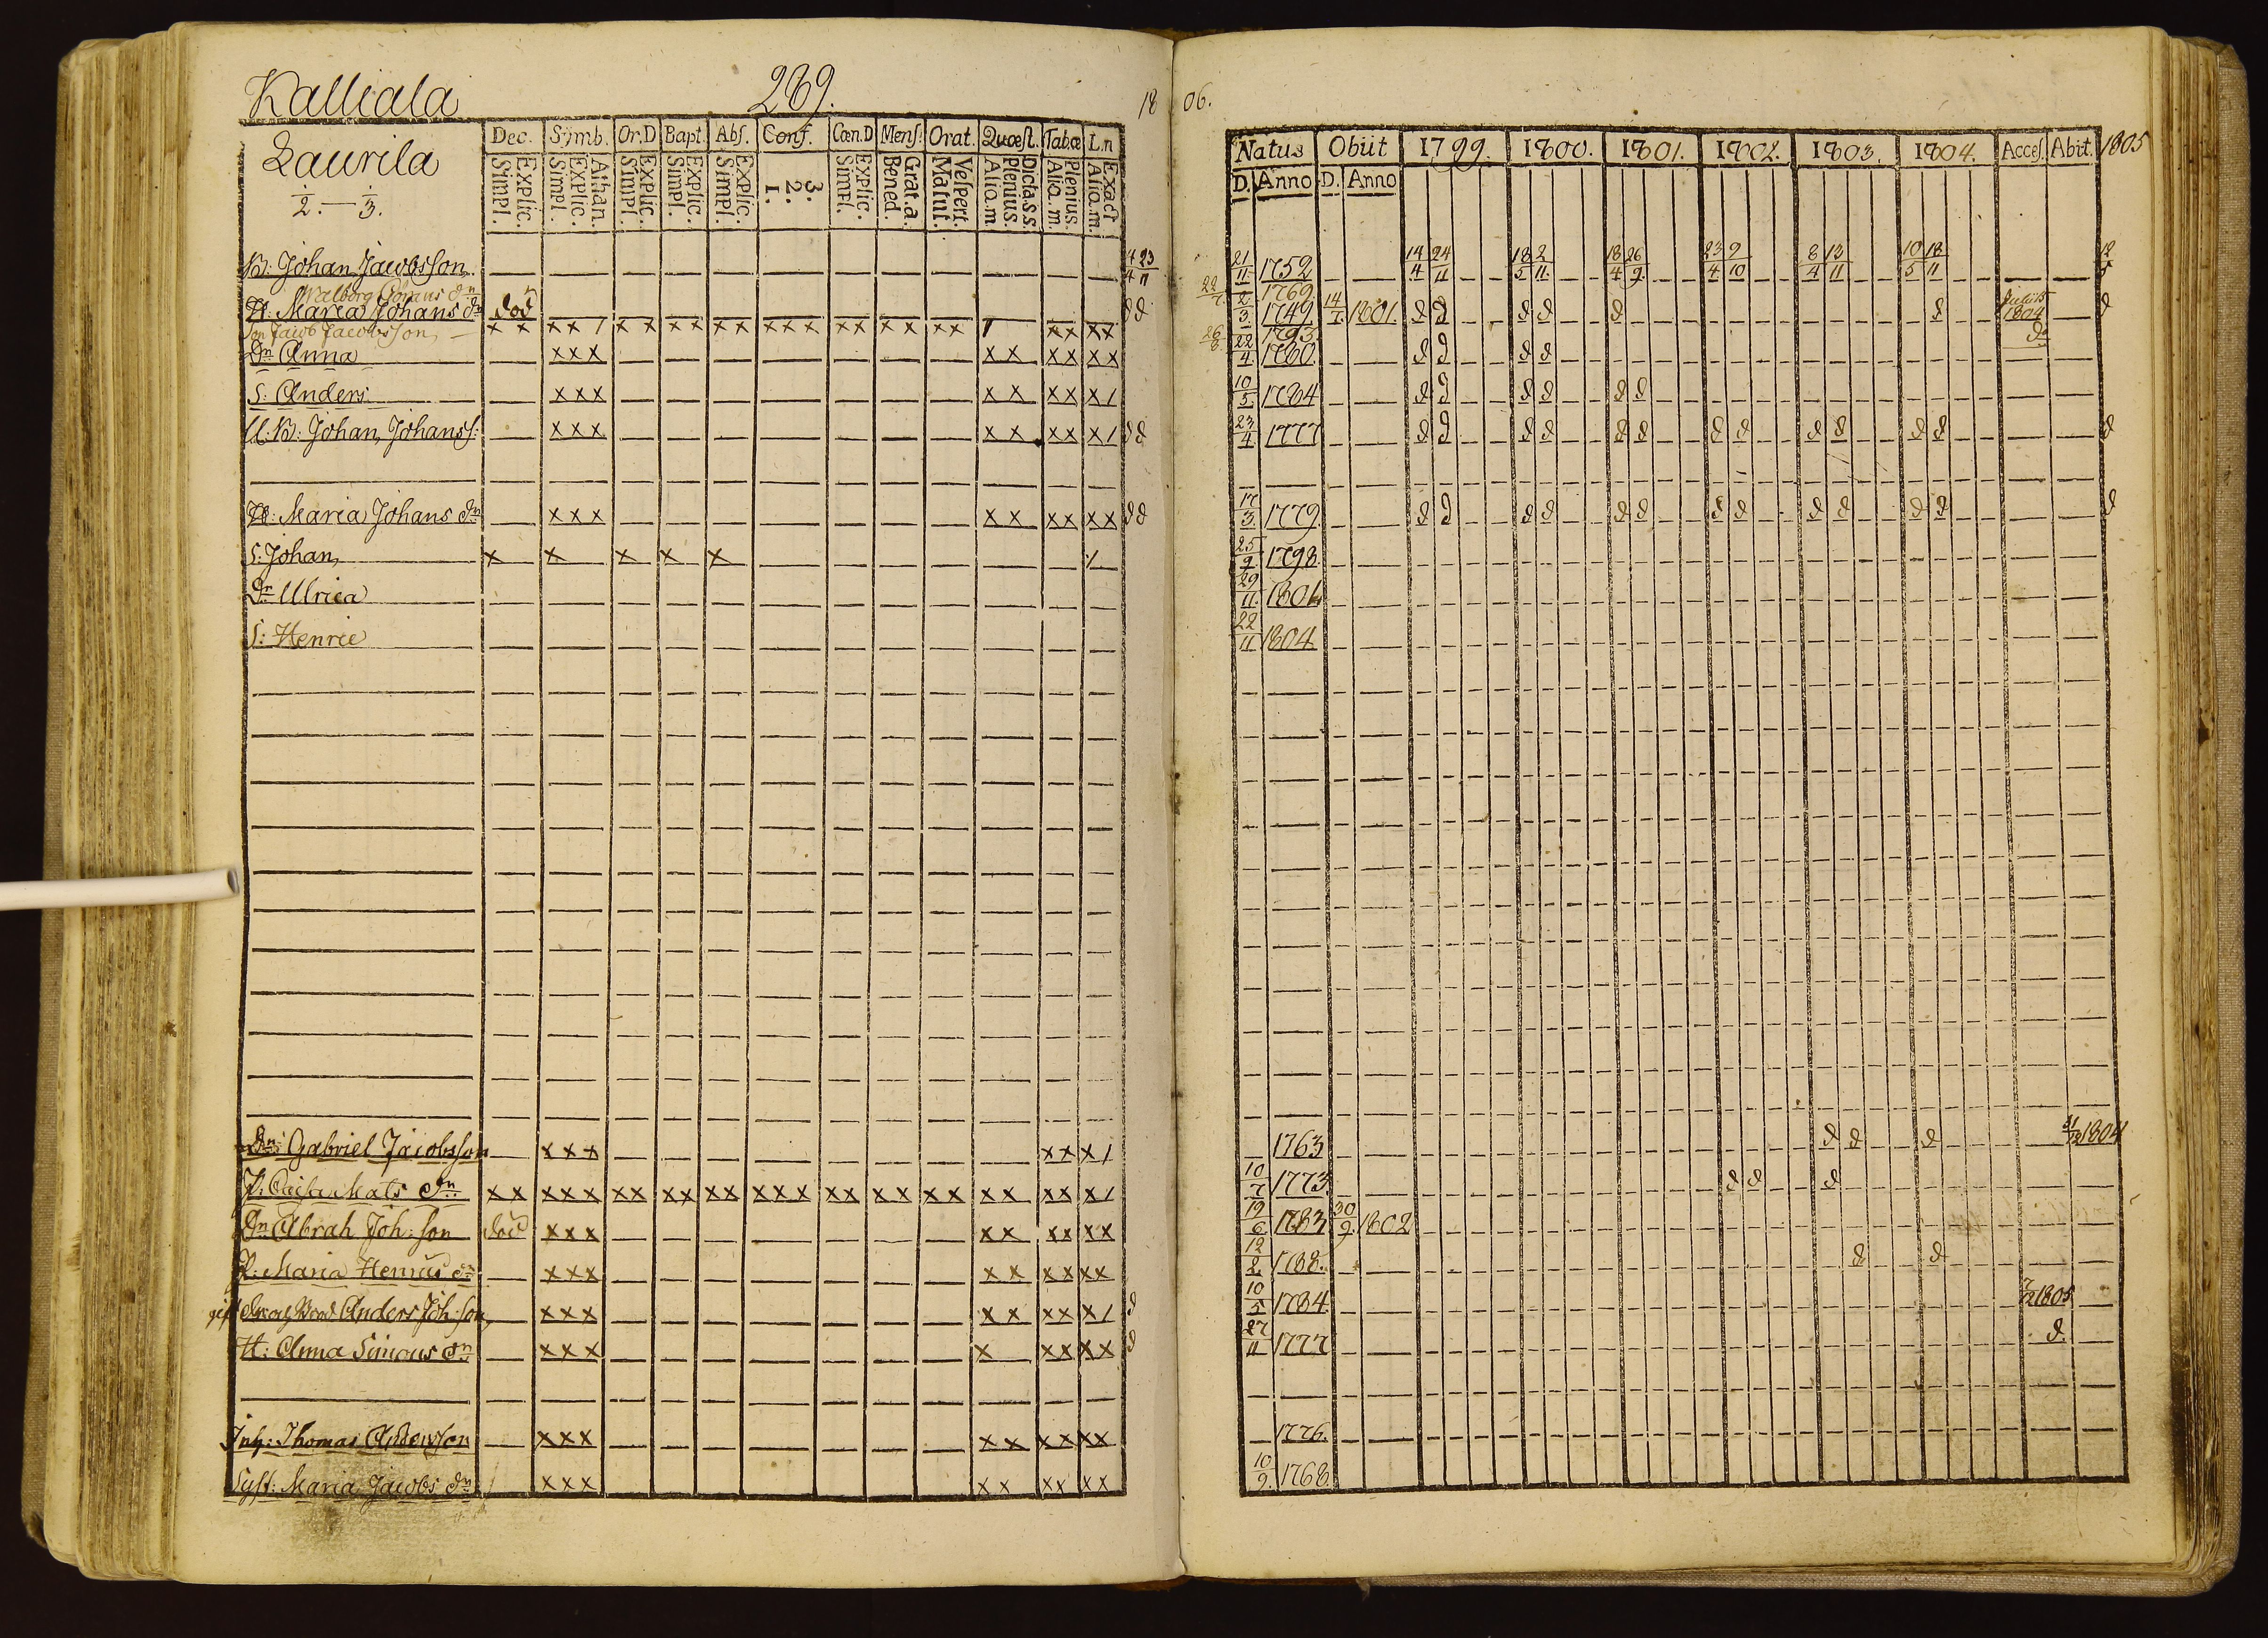 Kalliala 289. 18 06.
Laurila
2. — 3.
Dec. Symb. Or.D Bapt. Abs. Conf. Cœn.D Mens. Orat. Quæst. Tab.œ L.n
Explic. Simpl. Athan. Explic. Simpl. Explic. Simpl. Explic. Simpl. Explic. Simpl. 3. 2. 1. Explic. Simpl. Grat.a. Bened. Vespert. Matut. Dicta.s.s. Plenius. Aliq.m Plenius. Aliq.m. Exact Aliq.m.
Natus Obiit 1799. 1800. 1801. 1802. 1803. 1804. Acces. Abit. 1805
D. Anno D. Anno
B: Johan Jacobsson 4/4 23/11 21/11 1752 14/4 24/11 18/5 2/11 18/4 26/9 23/4 9/10 8/4 13/11 10/5 18/11
Walborg Görans dr 22/7 1769
H: Maria Johans dr död 2/3 1749 14/7 1801 1804
Son Jacob Jacobsson x x x x / x x x x x x x x x x x x x x x 1 x x x x 26/8 1793
Dr Anna x x x x x x x x x 22/4 1780
S: Anders x x x x x x x x / 10/5 1784
U: B: Johan Johans: x x x x x x x x / 23/4 1777
H: Maria Johans dr x x x x x x x x x 17/3 1779
S: Johan x x x x x / 25/9 1798
Dr Ulrica 29/11 1801
S: Henric 22/11 1804
Dr: Gabriel Jacobsson x x x x x x / 1763 1804
P: Caisa Mats dr x x x x x x x x x x x x x x x x x x x x x x x x x x / 10/7 1773
Dr Abrah Joh: son död x x x x x x x x x 19/6 1783 30/9 1802
P: Maria Henrics dr x x x x x x x x x 12/2 1788
Anders Joh: son x x x x x x x x / 10/5 1784 1805
H: Anna Simons dr x x x x x x x x 27/11 1777
Inh: Thomas Andersson x x x x x x x x x 1776
Syst: Maria Jacobs dr x x x x x x x x x 10/9 1768